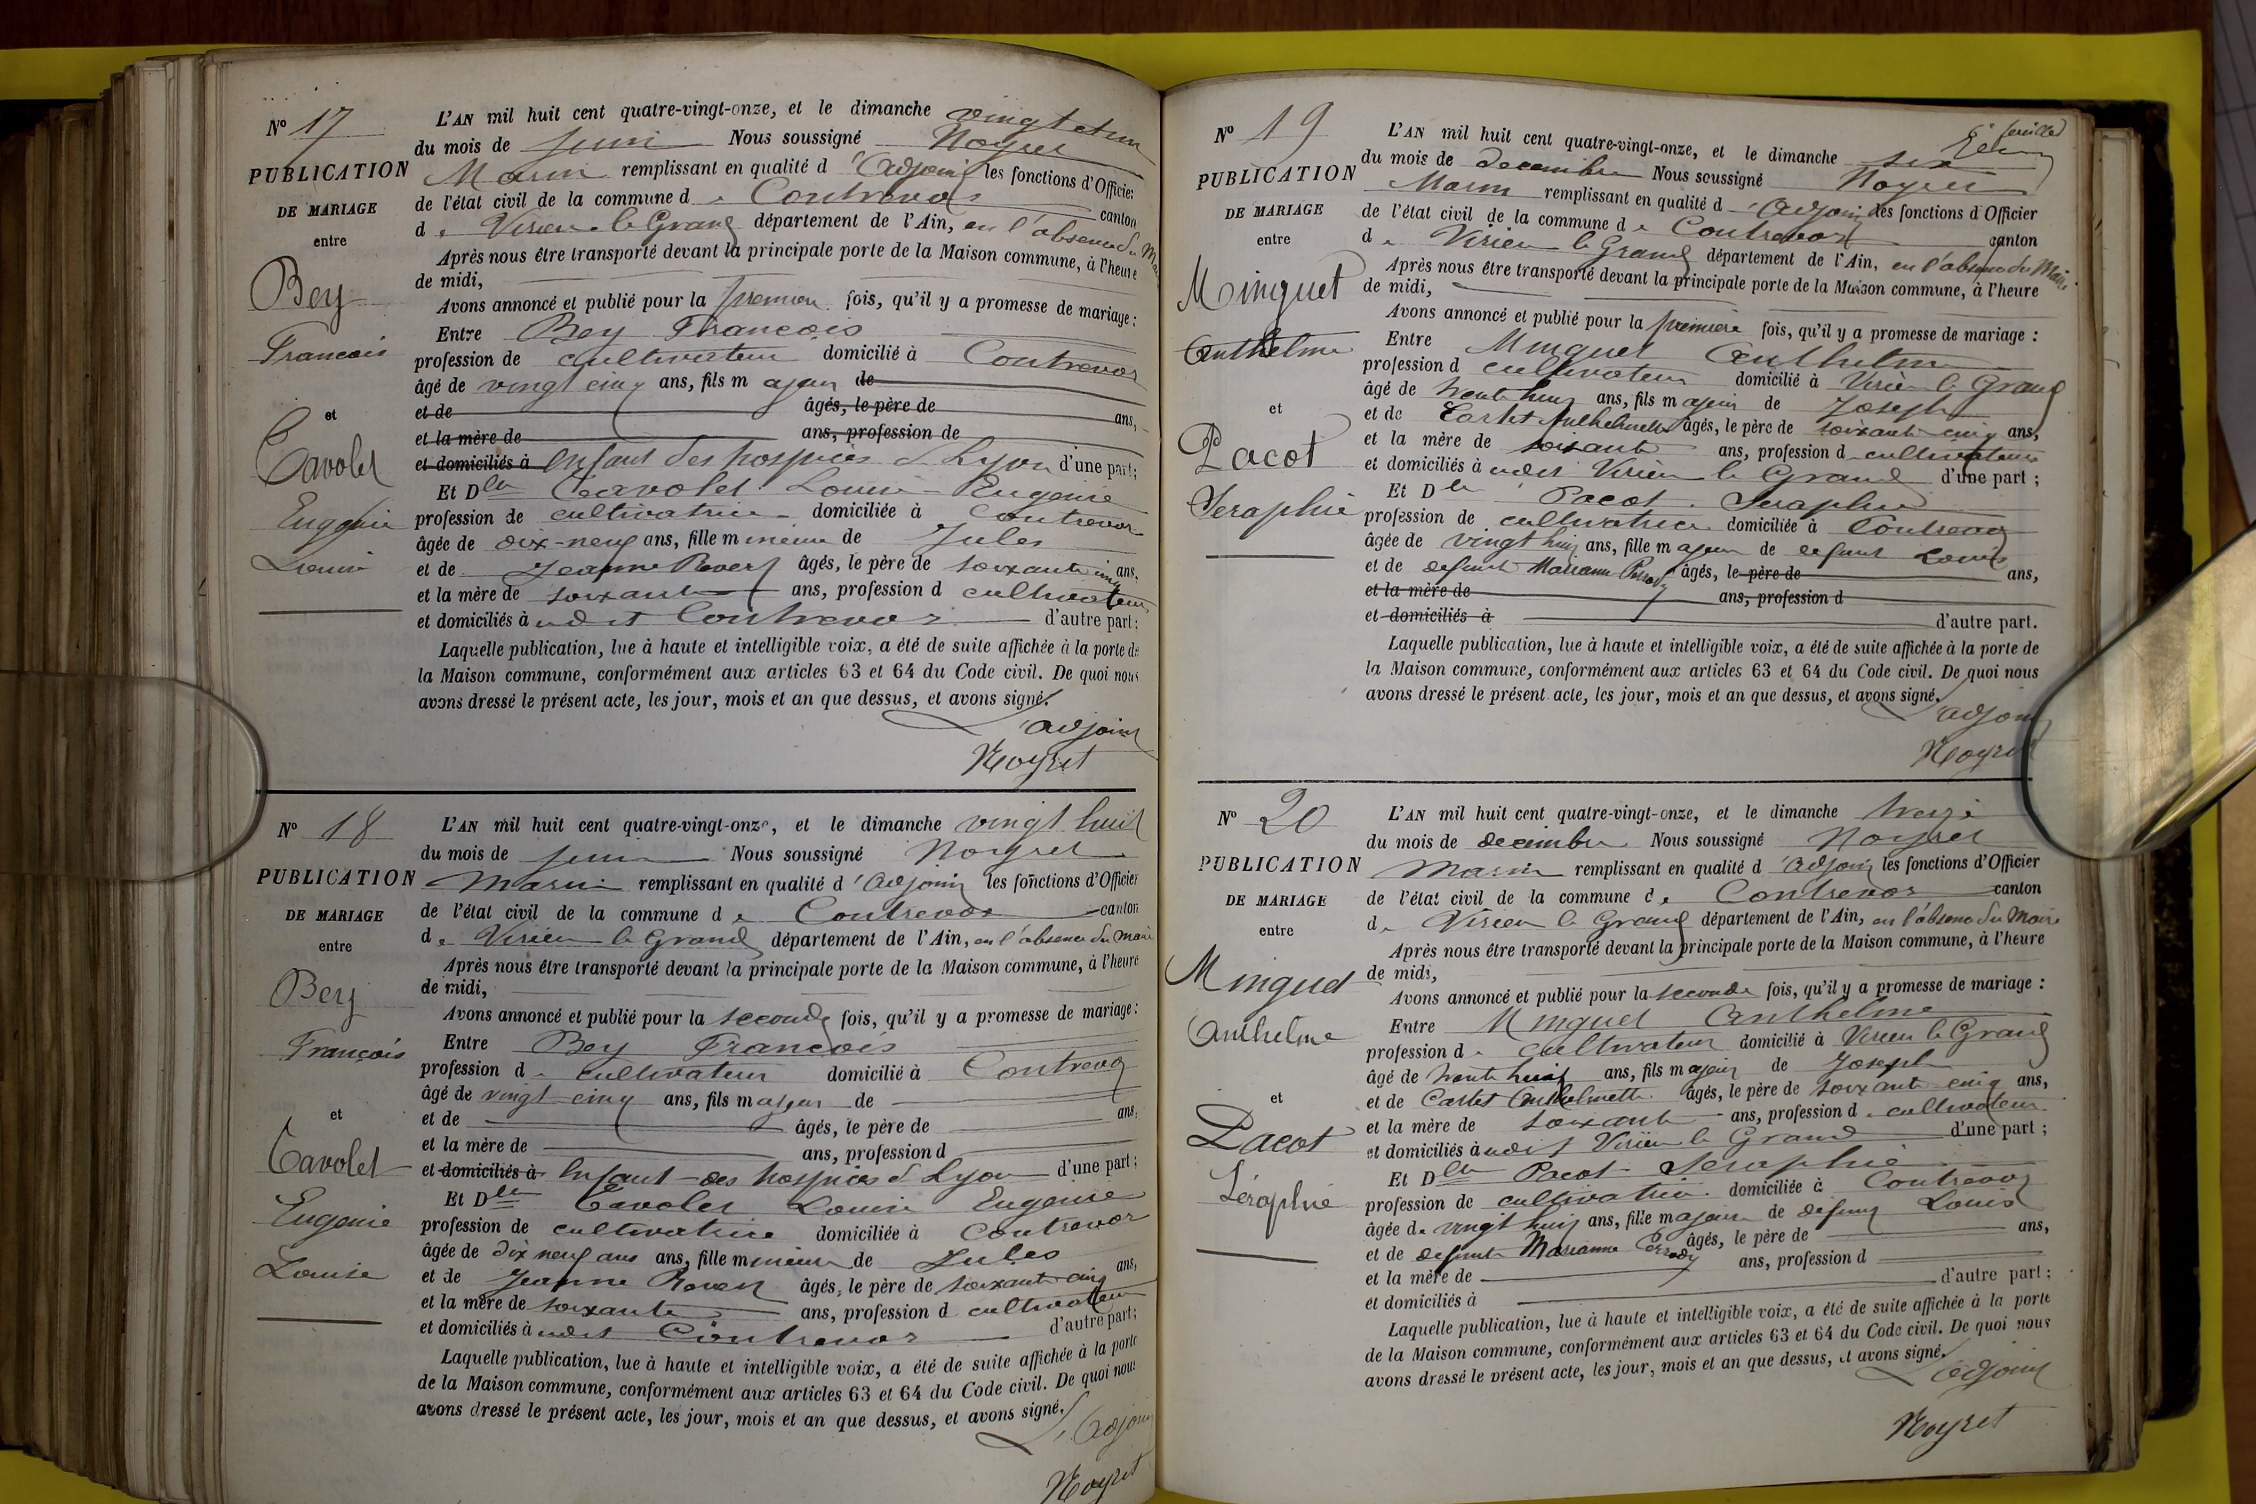 N° 17
PUBLICATION
DE MARIAGE
entre
Bey
Francois
et
Cavolet
Eugenie
Louise
L'AN mil huit cent quatre-vingt-onze, et le dimanche vingt et un
du mois de juin Nous soussigné Noyret
Marin remplissant en qualité d'adjoint les fonctions d'Officier
de l'état civil de la commune de Contrevoz canton
de Virieu le Grand département de l'Ain, en l'absence du Maire
Après nous être transporté devant la principale porte de la Maison commune, à l'heure
de midi,
Avons annoncé et publié pour la première fois, qu'il y a promesse de mariage :
Entre Bey Francois
profession de cultivateur domicilié à Contrevoz
âgé de vingt cinq ans, fils majeur de
et de âgés, le père de ans,
et la mère de ans, profession de
et domiciliés à enfant des hospices de Lyon d'une part;
Et Dlle Cavolet Louise Eugenie
profession de cultivatrice domiciliée à Contrevoz
âgée de dix-neuf ans, fille mineure de Jules
et de Jeanne âgés, le père de soixante cinq ans,
et la mère de soixante ans, profession de cultivateurs
et domiciliés à udit Contrevoz d'autre part;
Laquelle publication, lue à haute et intelligible voix, a été de suite affichée à la porte de
la Maison commune, conformément aux articles 63 et 64 du Code civil. De quoi nous
avons dressé le présent acte, les jour, mois et an que dessus, et avons signé.
L'adjoint
Noyret
N° 18
PUBLICATION
DE MARIAGE
entre
Bey
François
et
Cavolet
Eugenie
Louise
L'AN mil huit cent quatre-vingt-onze, et le dimanche vingt huit
du mois de juin Nous soussigné Noyret
Marin remplissant en qualité d'adjoint les fonctions d'Officier
de l'état civil de la commune de Contrevoz canton
de Virieu le Grand département de l'Ain, en l'absence du Maire
Après nous être transporté devant la principale porte de la Maison commune, à l'heure
de midi,
Avons annoncé et publié pour la seconde fois, qu'il y a promesse de mariage :
Entre Bey Francois
profession de cultivateur domicilié à Contrevoz
âgé de vingt cinq ans, fils majeur de
et de âgés, le père de ans,
et la mère de ans, profession d
et domiciliés à Enfant des hospices de Lyon d'une part;
Et Dlle Cavolet Louise Eugenie
profession de cultivatrice domiciliée à Contrevoz
âgée de dix neuf ans ans, fille mineure de Jules
et de Jeanne âgés, le père de soixante cinq ans,
et la mère de soixante ans, profession d cultivateurs
et domiciliés à udit Contrevoz d'autre part;
Laquelle publication, lue à haute et intelligible voix, a été de suite affichée à la porte
de la Maison commune, conformément aux articles 63 et 64 du Code civil. De quoi nous
avons dressé le présent acte, les jour, mois et an que dessus, et avons signé.
L'adjoint
Noyret
N° 19
PUBLICATION
DE MARIAGE
entre
Minguet
Anthelme
et
Pacot
Seraphie
feuillet
L'AN mil huit cent quatre-vingt-onze, et le dimanche six
du mois de decembre Nous soussigné Noyret
Marin remplissant en qualité d'adjoint les fonctions d'Officier
de l'état civil de la commune de Contrevoz canton
de Virieu le Grand département de l'Ain, en l'absence du Maire
Après nous être transporté devant la principale porte de la Maison commune, à l'heure
de midi,
Avons annoncé et publié pour la première fois, qu'il y a promesse de mariage :
Entre Minguet Anthelme
profession d cultivateur domicilié à Virieu le Grand
âgé de trente huit ans, fils majeur de Joseph
et de Cartet Anthelmette âgés, le père de soixante cinq ans,
et la mère de soixante ans, profession de cultivateurs
et domiciliés à udit Virieu le Grand d'une part ;
Et Dlle Pacot Seraphie
profession de cultivatrice domiciliée à Contrevoz
âgée de vingt huit ans, fille majeure de defunt Louis
et de defunte Marianne Perrody âgés, le père de ans,
et la mère de ans, profession d
et domiciliés à d'autre part.
Laquelle publication, lue à haute et intelligible voix, a été de suite affichée à la porte de
la Maison commune, conformément aux articles 63 et 64 du Code civil. De quoi nous
avons dressé le présent acte, les jour, mois et an que dessus, et avons signé.
L'adjoint
Noyret
N° 20
PUBLICATION
DE MARIAGE
entre
Minguet
Anthelme
et
Pacot
Séraphie
L'AN mil huit cent quatre-vingt-onze, et le dimanche treize
du mois de decembre Nous soussigné Noyret
Marin remplissant en qualité d'adjoint les fonctions d'Officier
de l'état civil de la commune de Contrevoz canton
de Virieu le Grand département de l'Ain, en l'absence du Maire
Après nous être transporté devant la principale porte de la Maison commune, à l'heure
de midi,
Avons annoncé et publié pour la seconde fois, qu'il y a promesse de mariage :
Entre Minguet Anthelme
profession de cultivateur domicilié à Virieu le Grand
âgé de trente huit ans, fils majeur de Joseph
et de Cartet Anthelmette âgés, le père de soixante cinq ans,
et la mère de soixante ans, profession de cultivateurs
et domiciliés à udit Virieu le Grand d'une part ;
Et Dlle Pacot Seraphie
profession de cultivatrice domiciliée à Contrevoz
âgée de vingt huit ans, fille majeure de defunt Louis
et de defunte Marianne Perrody âgés, le père de ans,
et la mère de ans, profession d
et domiciliés à d'autre part ;
Laquelle publication, lue à haute et intelligible voix, a été de suite affichée à la porte
de la Maison commune, conformément aux articles 63 et 64 du Code civil. De quoi nous
avons dressé le présent acte, les jour, mois et an que dessus, et avons signé.
L'adjoint
Noyret